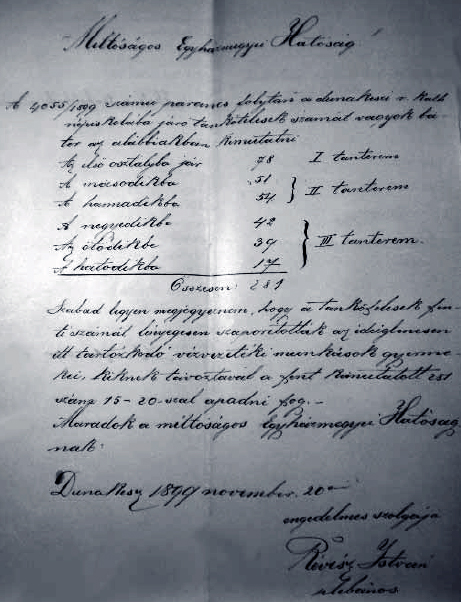 Méltóságos Egyházmegyei Hatóság!
A 4055/1899 számú parancs folytán a dunakeszi r. kath
népiskolába járó tankötelesek számát vagyok bá-
tor az alábbiakban kimutatni
Az első osztályba jár 78 I tanterem
A másodikba 51
A harmadikba 54 } II tanterem
A negyedikbe 42
Az ötödikbe 39 } III tanterem.
A hatodikba 17
Összesen: 281
Szabad legyen megjegyeznem, hogy a tankötelesek fen-
ti számát lényegesen szaporították az ideiglenesen
itt tartózkodó vízvezetéki munkások gyerme-
kei, kiknek távoztával a fent kimutatott
szám 15-20-szal apadni fog.-
Maradok a méltóságos Egyházmegyei Hatóság
nak:
Dunakesz 1899 november. 20
engedelmes szolgája
Révész István
plébános